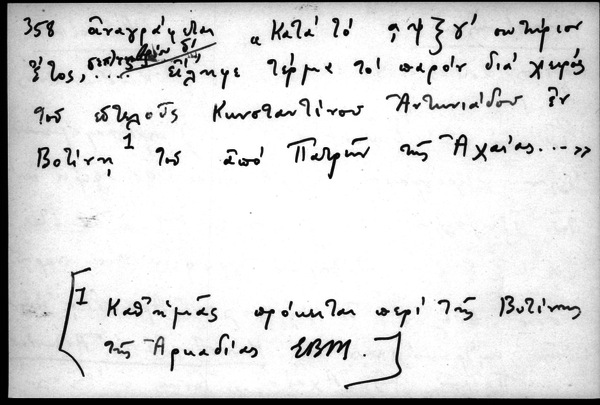 358 ἀναγράφεται "Κατὰ τὸ αψξγ' σωτήριον
ἔτος, ... εἴληφε τέρμα τὸ παρὸν διὰ χειρὸς
τοῦ εὐτελοῦς Κωνσταντίνου Ἀντωνιάδου ἐν
Βοτίνῃ 1 τοῦ ἀπὸ Πατρῶν τῆς Ἀχαΐας...»
[1 Καθ' ἡμᾶς πρόκειται περὶ τῆς Βυτίνης
τῆς Ἀρκαδίας ΕΒΜ.]